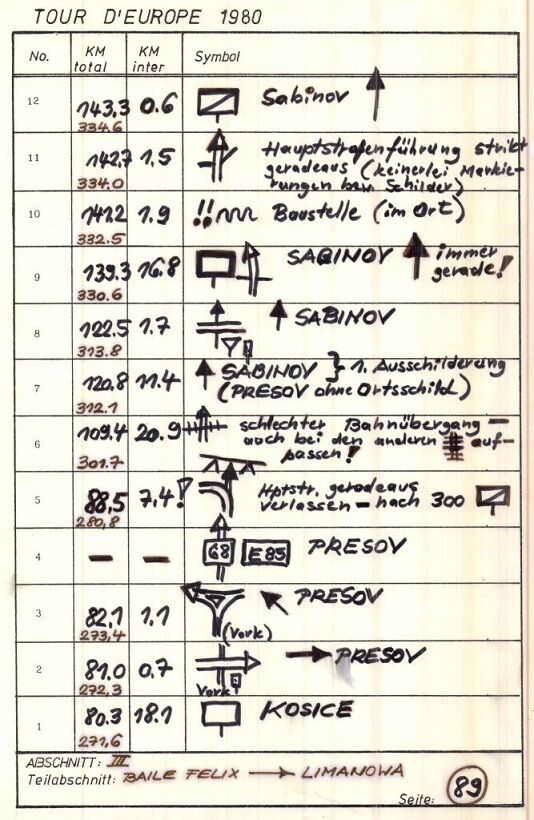 TOUR D'EUROPE 1980
No. KM total KM inter Symbol
12 143,3 0.6 Sabinov
334.6
11 142,7 1,5 Hauptstraßenführung strikt
334.0 geradeaus (keinerlei Markie-
rungen bzw. Schilder)
10 141.2 1.9 !! Baustelle (im Ort)
332.5
9 139.3 16.8 SABINOV immer
330.6 gerade!
8 122,5 1.7 SABINOV
313.8
7 120,8 11.4 SABINOV } 1. Ausschilderung
312.1 (PRESOV ohne Ortsschild)
6 109.4 20.9 schlechter Bahnübergang —
301.7 auch bei den anderen auf-
passen!
5 88,5 7,4! Hptstr. geradeaus
280,8 verlassen — nach 300
4 — — 68 E85 PRESOV
3 82,1 1.1 PRESOV
273,4 (Vork)
2 81.0 0,7 PRESOV
272,3 Vork
1 80.3 18.1 KOSICE
271,6
ABSCHNITT: III
Teilabschnitt: BAILE FELIX → LIMANOWA
Seite: 89